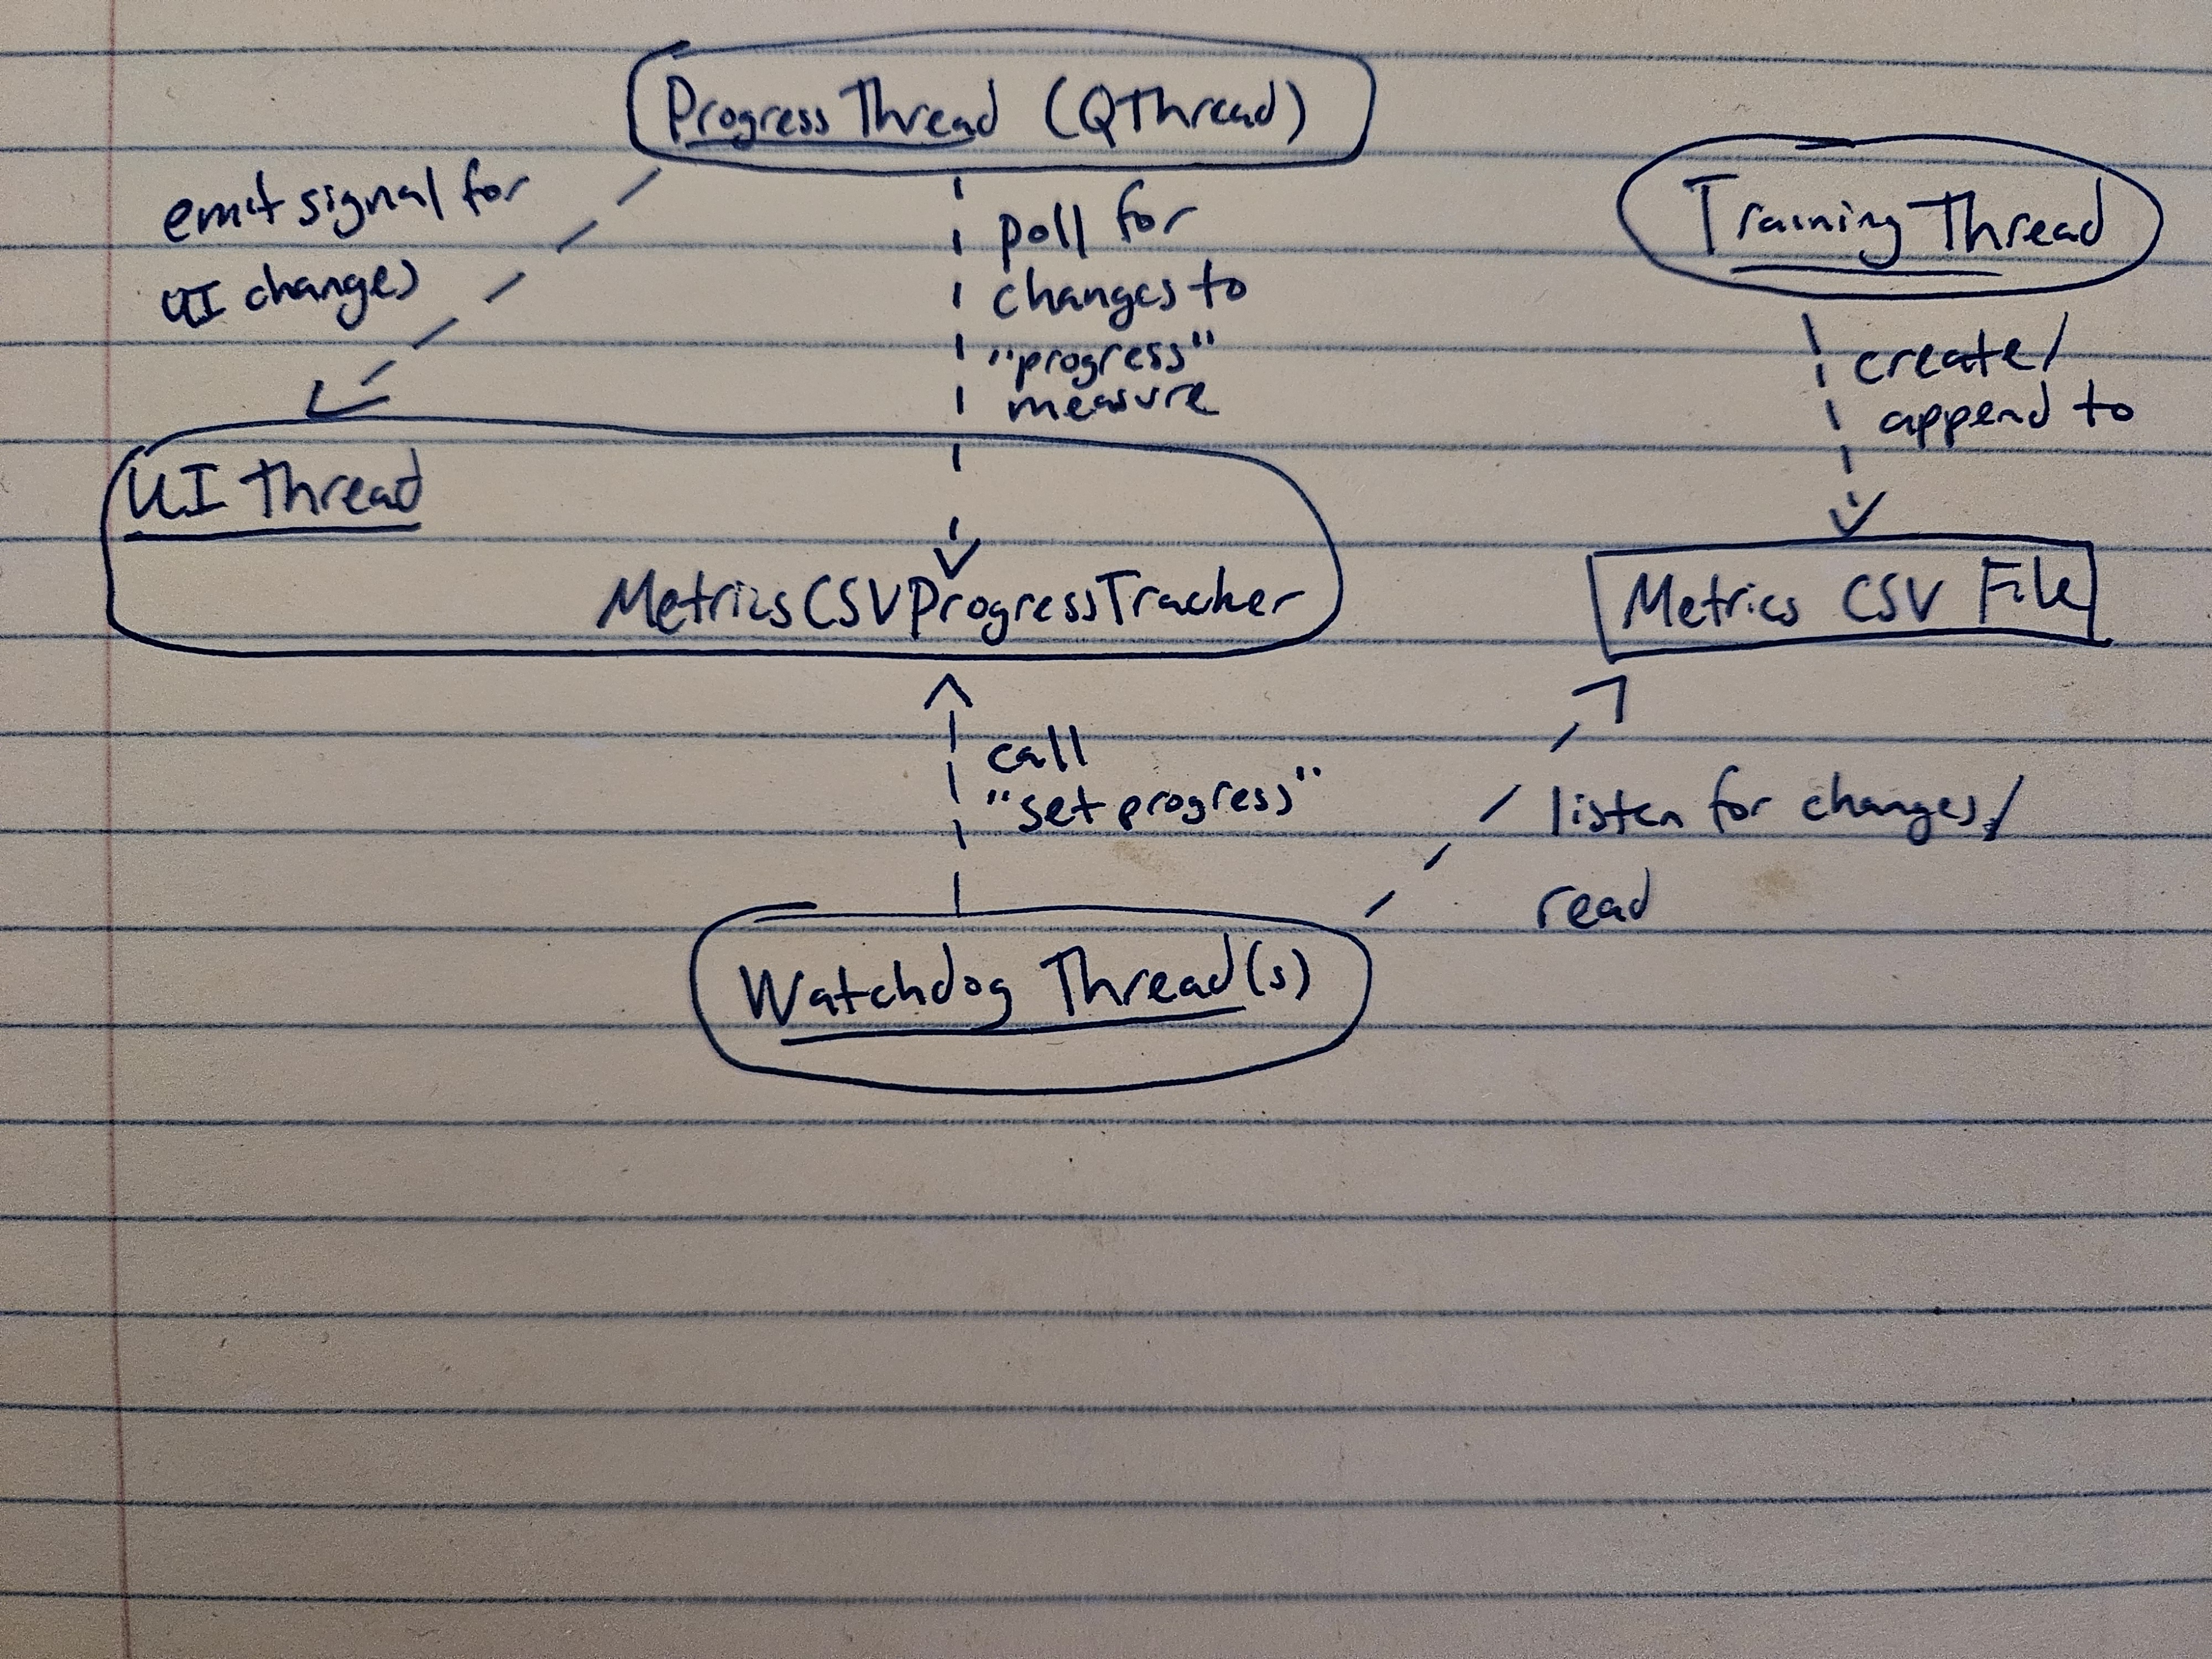 Progress Thread (QThread)
emit signal for
UI changes
poll for
changes to
"progress"
measure
Training Thread
create/
append to
UI Thread
MetricsCSVProgressTracker
Metrics CSV File
call
"set progress"
listen for changes/
read
Watchdog Thread(s)